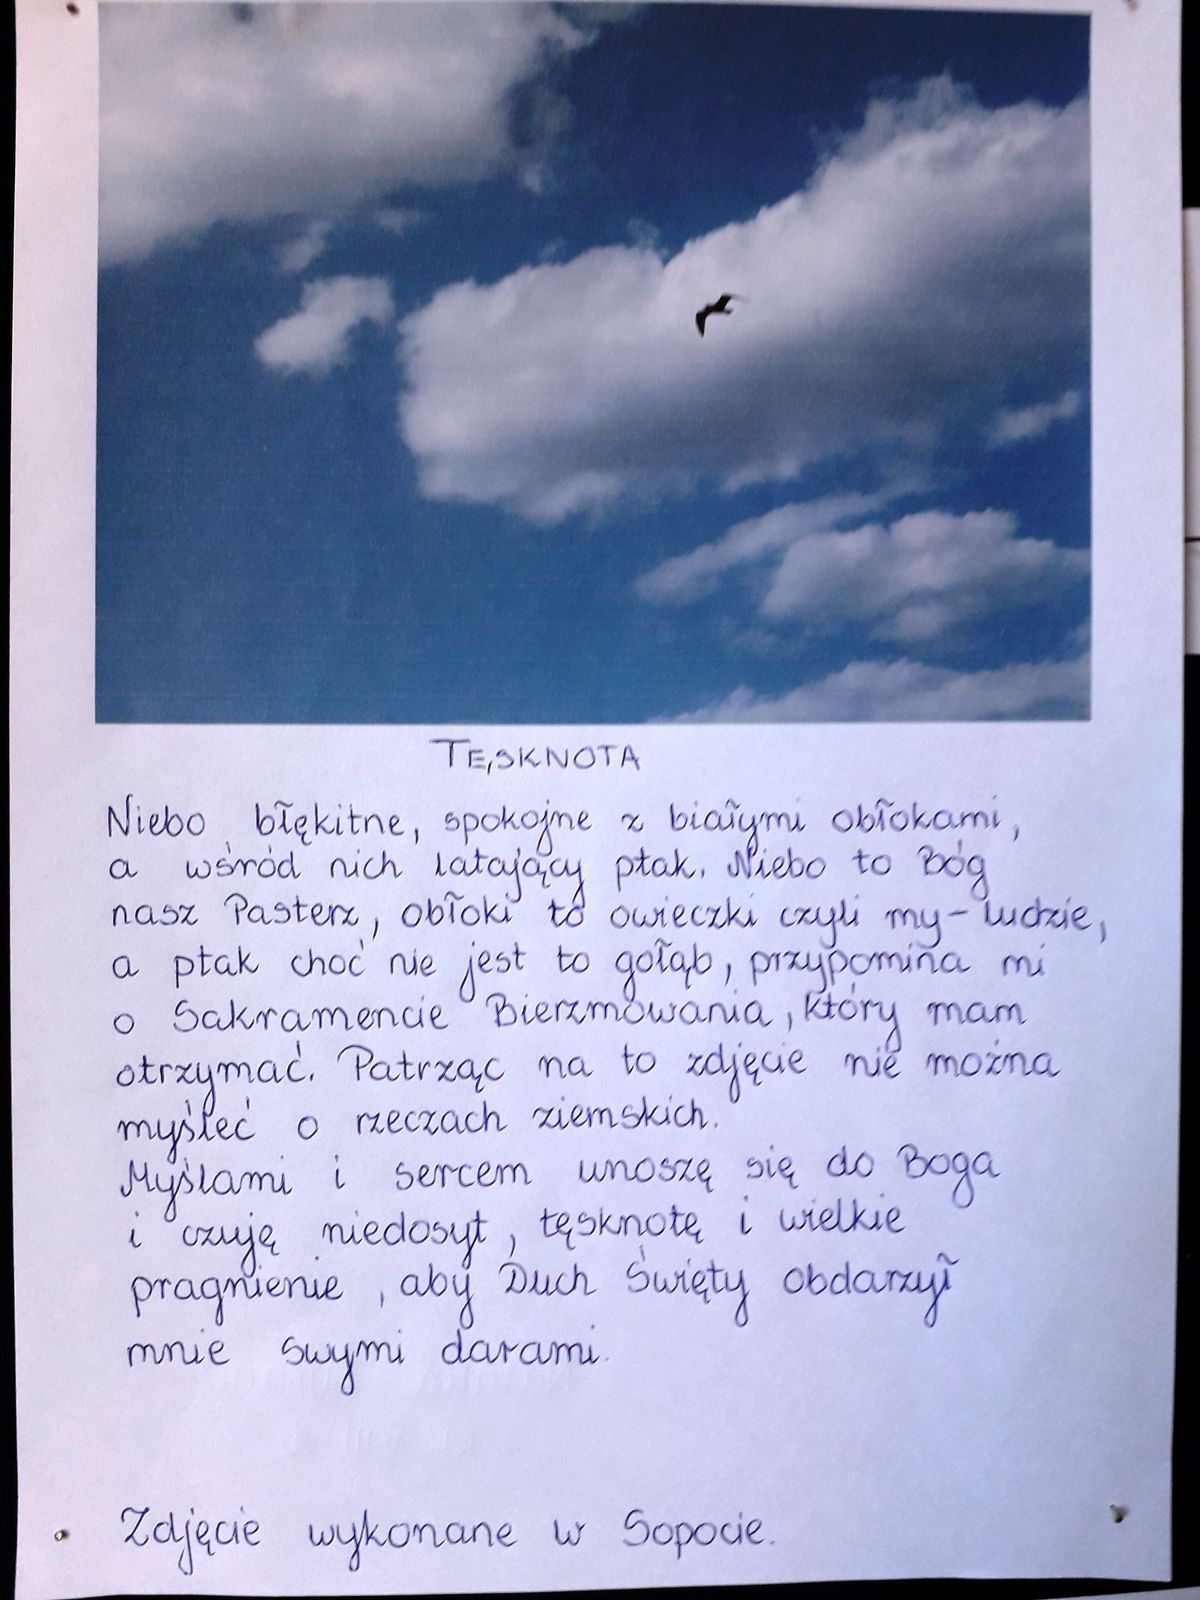 TĘSKNOTA
Niebo błękitne, spokojne z białymi obłokami,
a wśród nich latający ptak. Niebo to Bóg
nasz Pasterz, obłoki to owieczki czyli my - ludzie,
a ptak choć nie jest to gołąb, przypomina mi
o Sakramencie Bierzmowania, który mam
otrzymać. Patrząc na to zdjęcie nie można
myśleć o rzeczach ziemskich.
Myślami i sercem unoszę się do Boga
i czuję niedosyt, tęsknotę i wielkie
pragnienie, aby Duch Święty obdarzył
mnie swymi darami.
Zdjęcie wykonane w Sopocie.